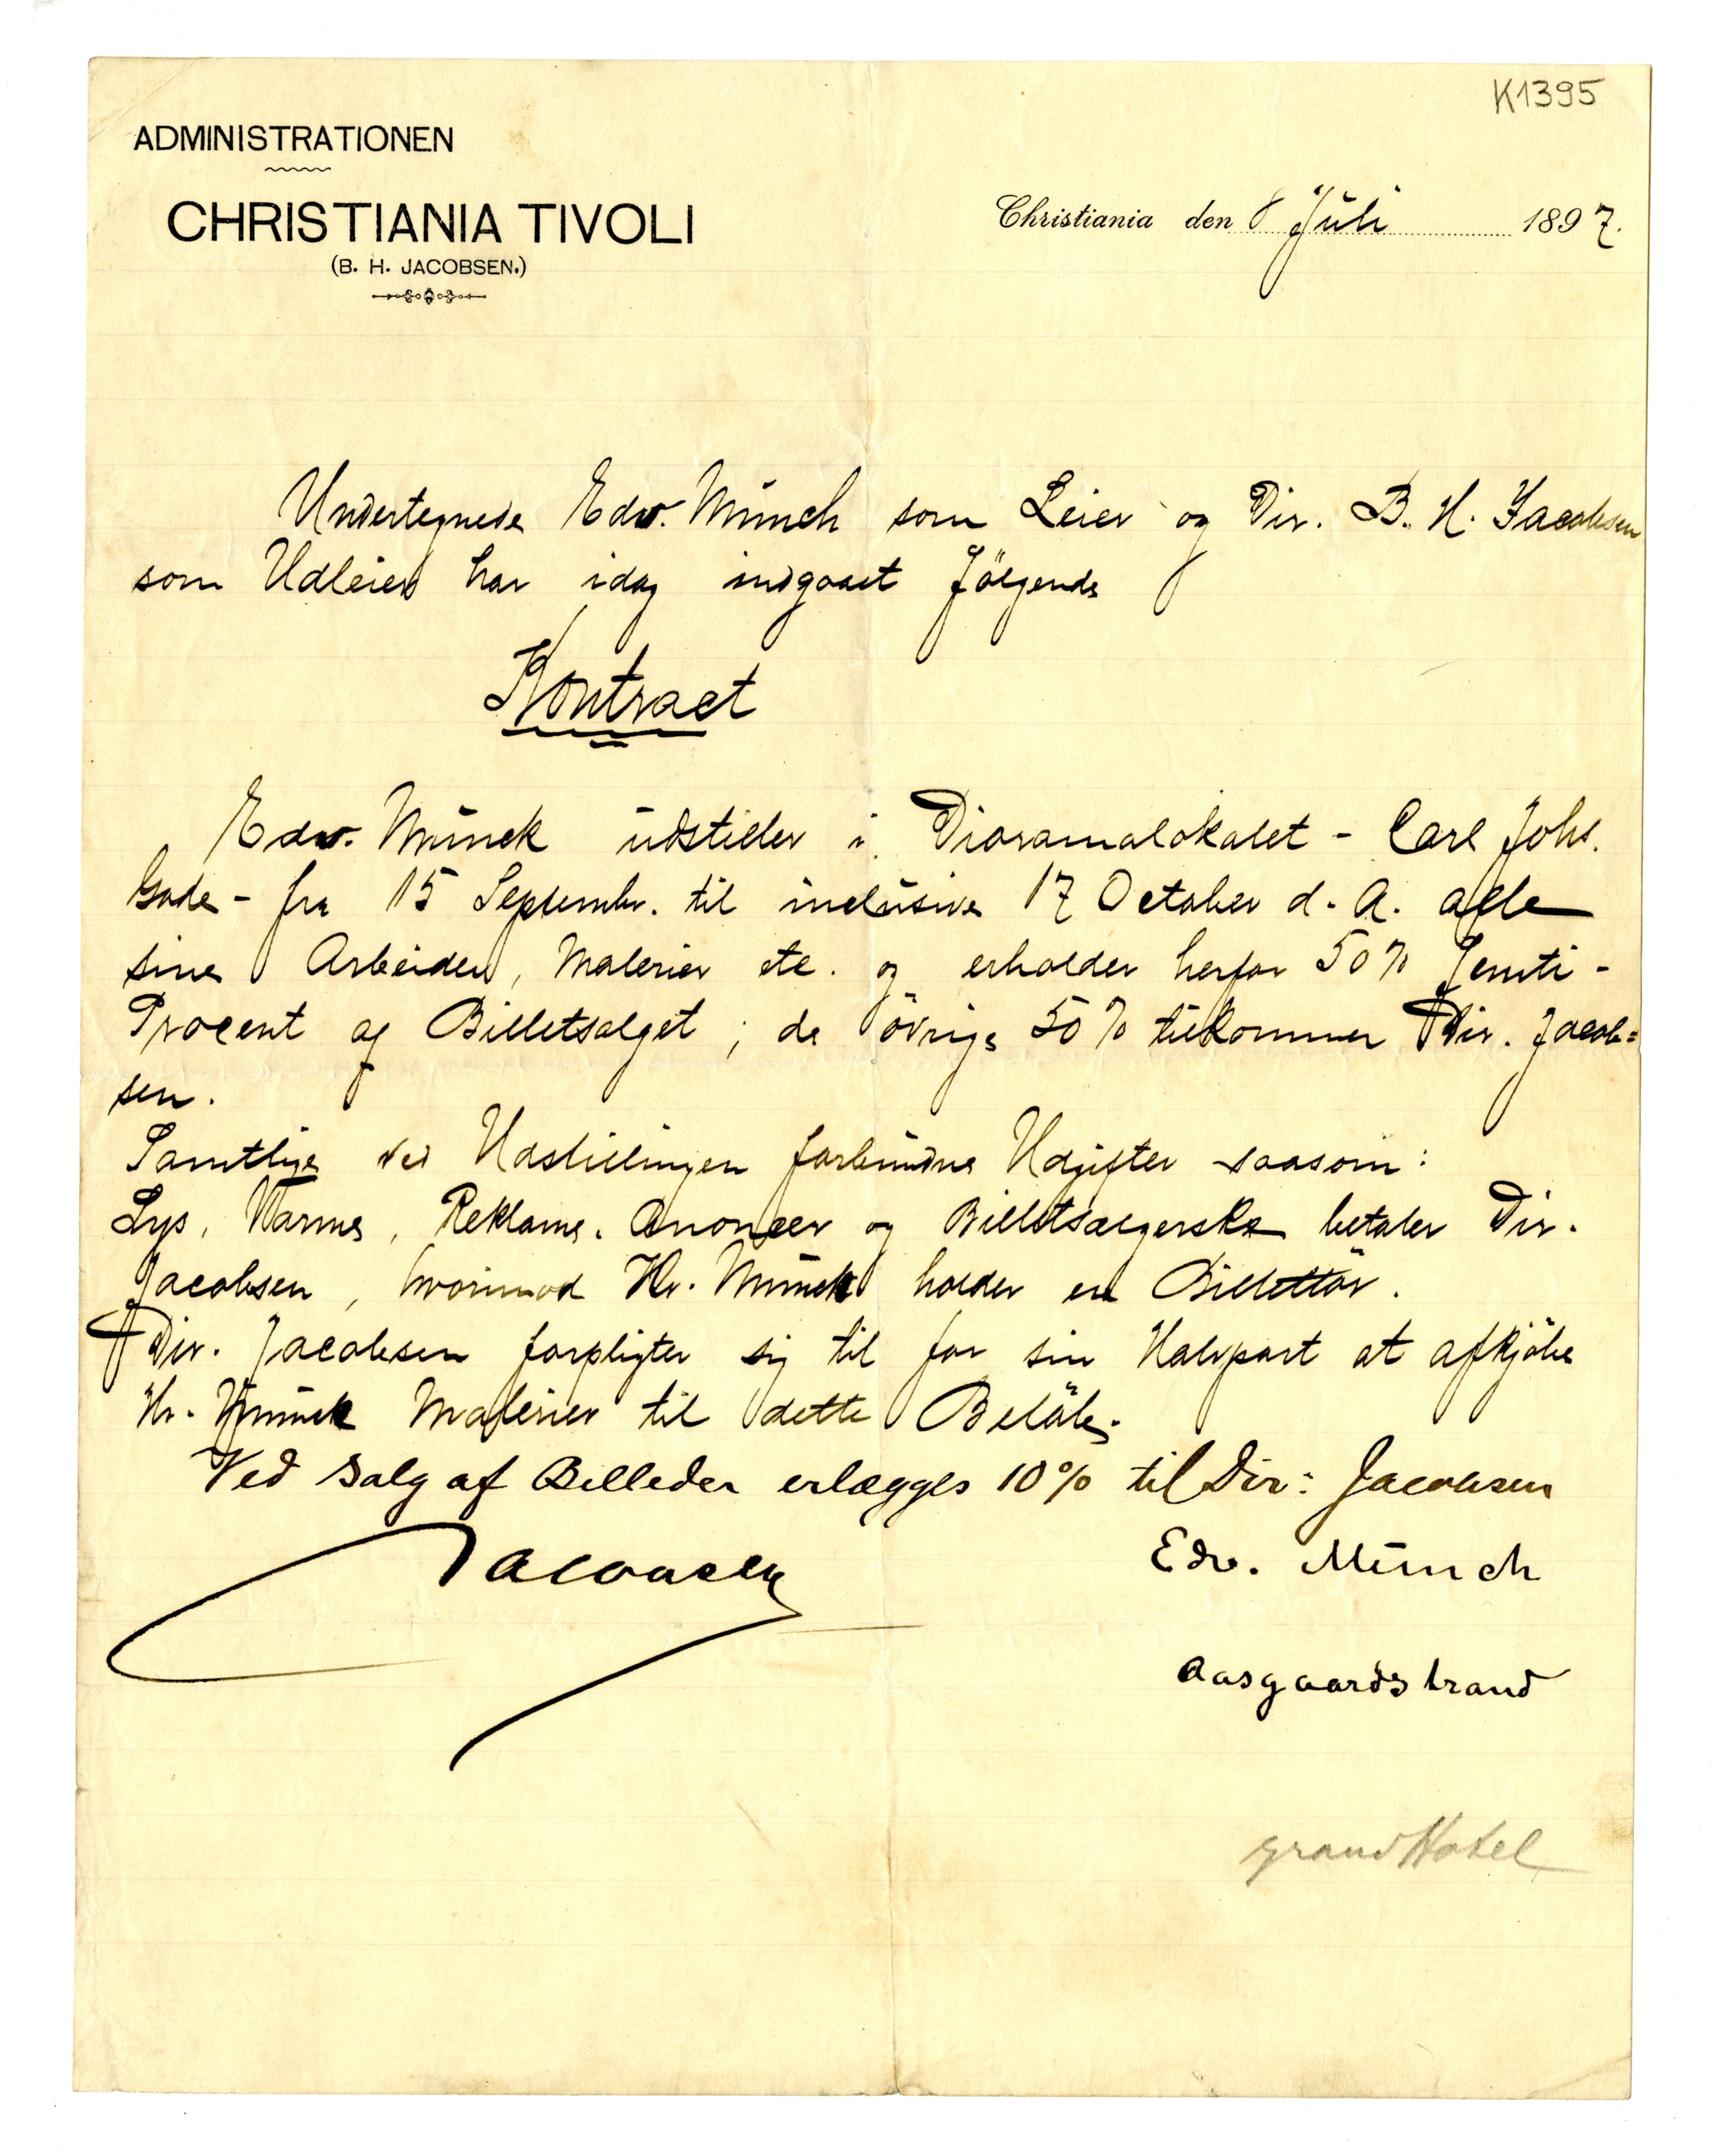 K1395
ADMINISTRATIONEN
CHRISTIANIA TIVOLI
(B. H. JACOBSEN.)
Christiania den 8 Juli 1897.
Undertegnede Edv. Munch som Leier og Dir. B. H. Jacobsen
som Udleier har idag indgaaet følgende
Kontract
Edv. Munck udstiller i Dioramalokalet - Carl Johs.
Gade - fra 15 Septembr. til inclusive 17 October d. A. alle
sine Arbeider, Malerier etc. og erholder herfor 50% femti-
Procent af Billetsalget; de øvrige 50% tilkommer Dir. Jacob=
sen.
Samtlige ved Udstillingen forbundne Udgifter saasom:
Lys, Varme, Reklame, Anoncer og Billetsælgerske betaler Dir.
Jacobsen, hvorimod Hr. Munck holder en Billettör.
Dir. Jacobsen forpligter sig til for sin Halvpart at afkjöbe
Hr. Munck Malerier til dette Belöb.
Ved Salg af Billeder erlægges 10% til Dir: Jacobsen
Jacobsen
Edv. Munch
Aasgaardstrand
Grand Hotel